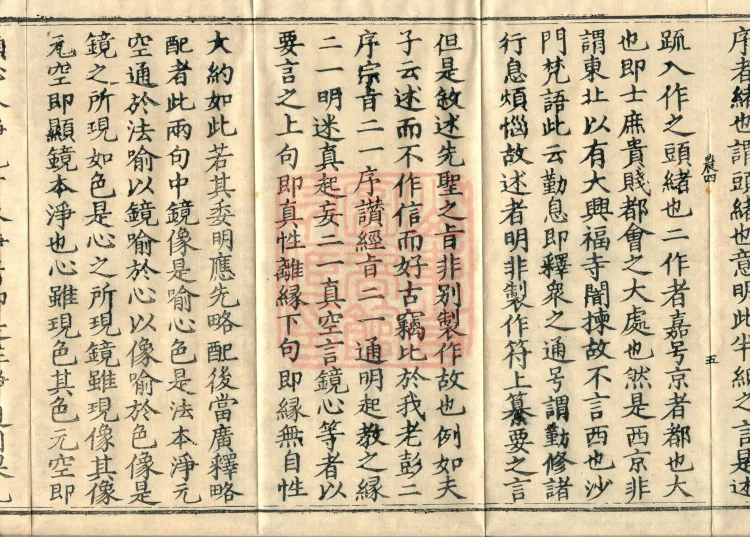 序者緒也謂頭緒也意明此半紙之言是述
農四
五
䟽入作之頭緒也二作者嘉号京者都也大
也即士庶貴賤都會之大處也然是西京非
謂東北以有大興福寺簡揀故不言西也沙
門梵語此云勤息即釋衆之通号謂勤修諸
行息煩惱故述者明非製作符上纂要之言
但是敘述先聖之旨非別製作故也例如夫
子云述而不作信而好古竊比於我老彭二
序宗旨二一序讃經旨二一通明起教之縁
二一明迷真起妄二一真空言鏡心等者以
要言之上句即真性離縁下句即縁無自性
大約如此若其委明應先略配後當廣釋略
配者此兩句中鏡像是喻心色是法本淨元
空通於法喻以鏡喻於心以像喻於色像是
鏡之所現如色是心之所現鏡雖現像其像
元空即顯鏡本淨也心雖現色其色元空即